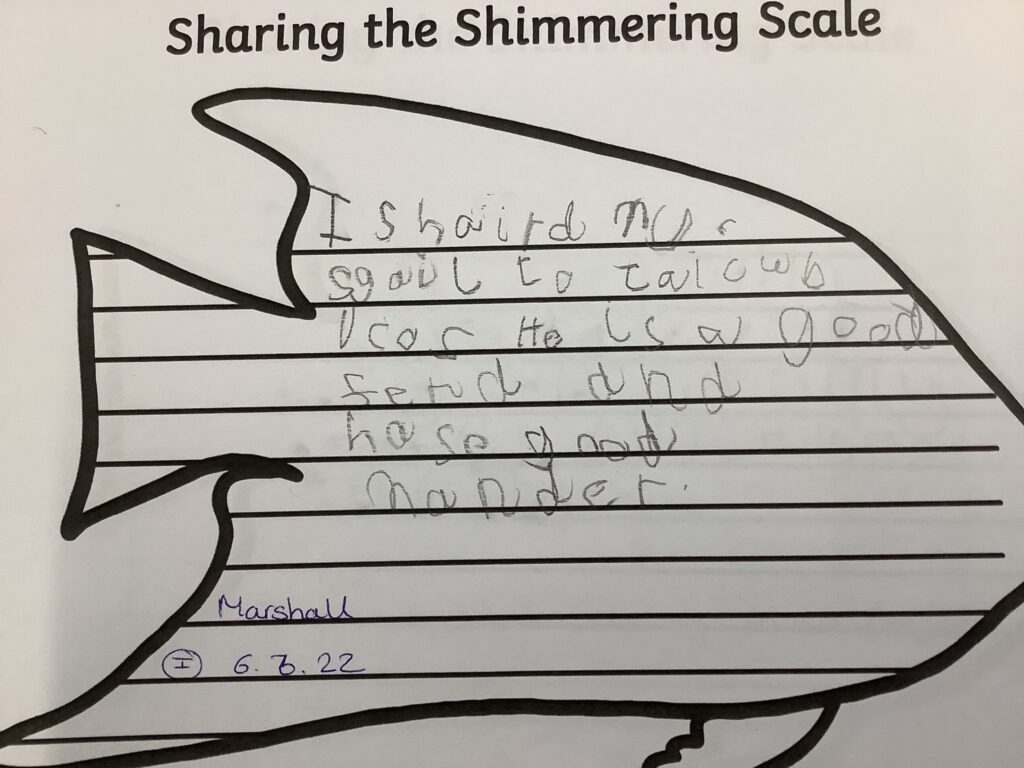 Sharing the Shimmering Scale
I Shaird my
sgail to talcwb
Icos He is a good
fernd and
hase good
mander.
Marshall
I 6.7.22